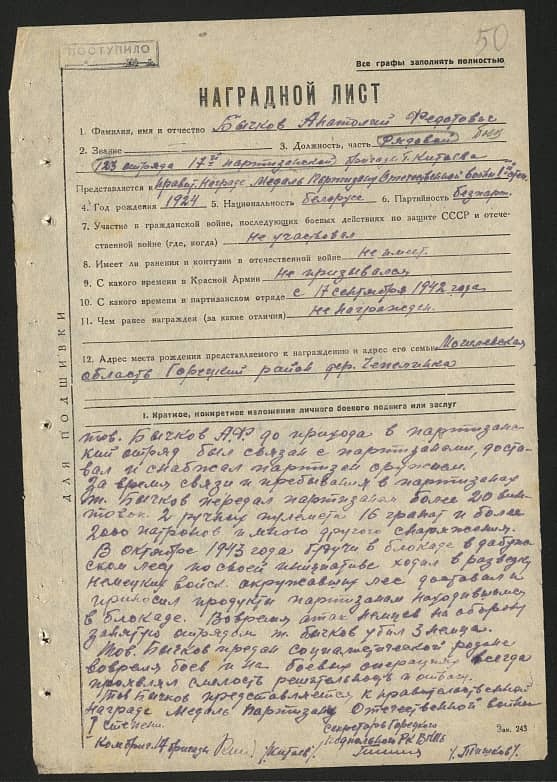 50
ПОСТУПИЛО
Все графы заполнять полностью
НАГРАДНОЙ ЛИСТ
1. Фамилия, имя и отчество Бычков Анатолий Федотович
2. Звание 3. Должность, часть Рядовой
123 отряда 17ой партизанской бригады т. Китаева
Представляется к правит. Награде Медаль Партизану Отечественной войны
4. Год рождения 1924 5. Национальность белорусс 6. Партийность безпарт.
7. Участие в гражданской войне, последующих боевых действиях по защите СССР и отече-
ственной войне (где, когда) не участвовал
8. Имеет ли ранения и контузии в отечественной войне не имеет.
9. С какого времени в Красной Армии не призывался
10. С какого времени в партизанском отряде с 17 сентября 1942 года
11. Чем ранее награжден (за какие отличия) не награжден.
12. Адрес места рождения представляемого к награждению и адрес его семьи Могилевская
область Горецкий район дер.
ДЛЯ ПОДШИВКИ
I. Краткое, конкретное изложение личного боевого подвига или заслуг
тов. Бычков АФ до прихода в партизанс-
кий отряд был связан с партизанами, доста-
вал и снабжал партизан оружием.
За время связи и пребывания в партизанах
т. Бычков передал партизанам более 20 вин-
товок 2 ручных пулемета 16 гранат и более
2000 патронов и много другого снаряжения.
В Октябре 1943 года будучи в блокаде в
лесу по своей инициативе ходил в разведку
немецких войск окружавших лес доставал и
приносил продукты партизанам находившимся
в блокаде. Вовремя атак немцев на оборону
занятую отрядом т. бычков убил 3 немца.
Тов. Бычков предан социалистической родине
вовремя боев и на боевых операциях всегда
проявлял смелость решительность и отвагу.
Тов Бычков представляется к правительственной
награде Медаль Партизану Отечественной войны
I степени.
Секретарь Горецкого
Комбриг 17 бригады /Китаев/ подпольного РК
Зак. 243